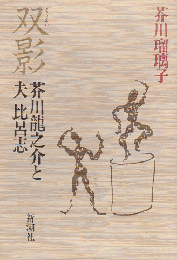 芥川瑠璃子
双影
芥川龍之介と
夫 比呂志
新潮社